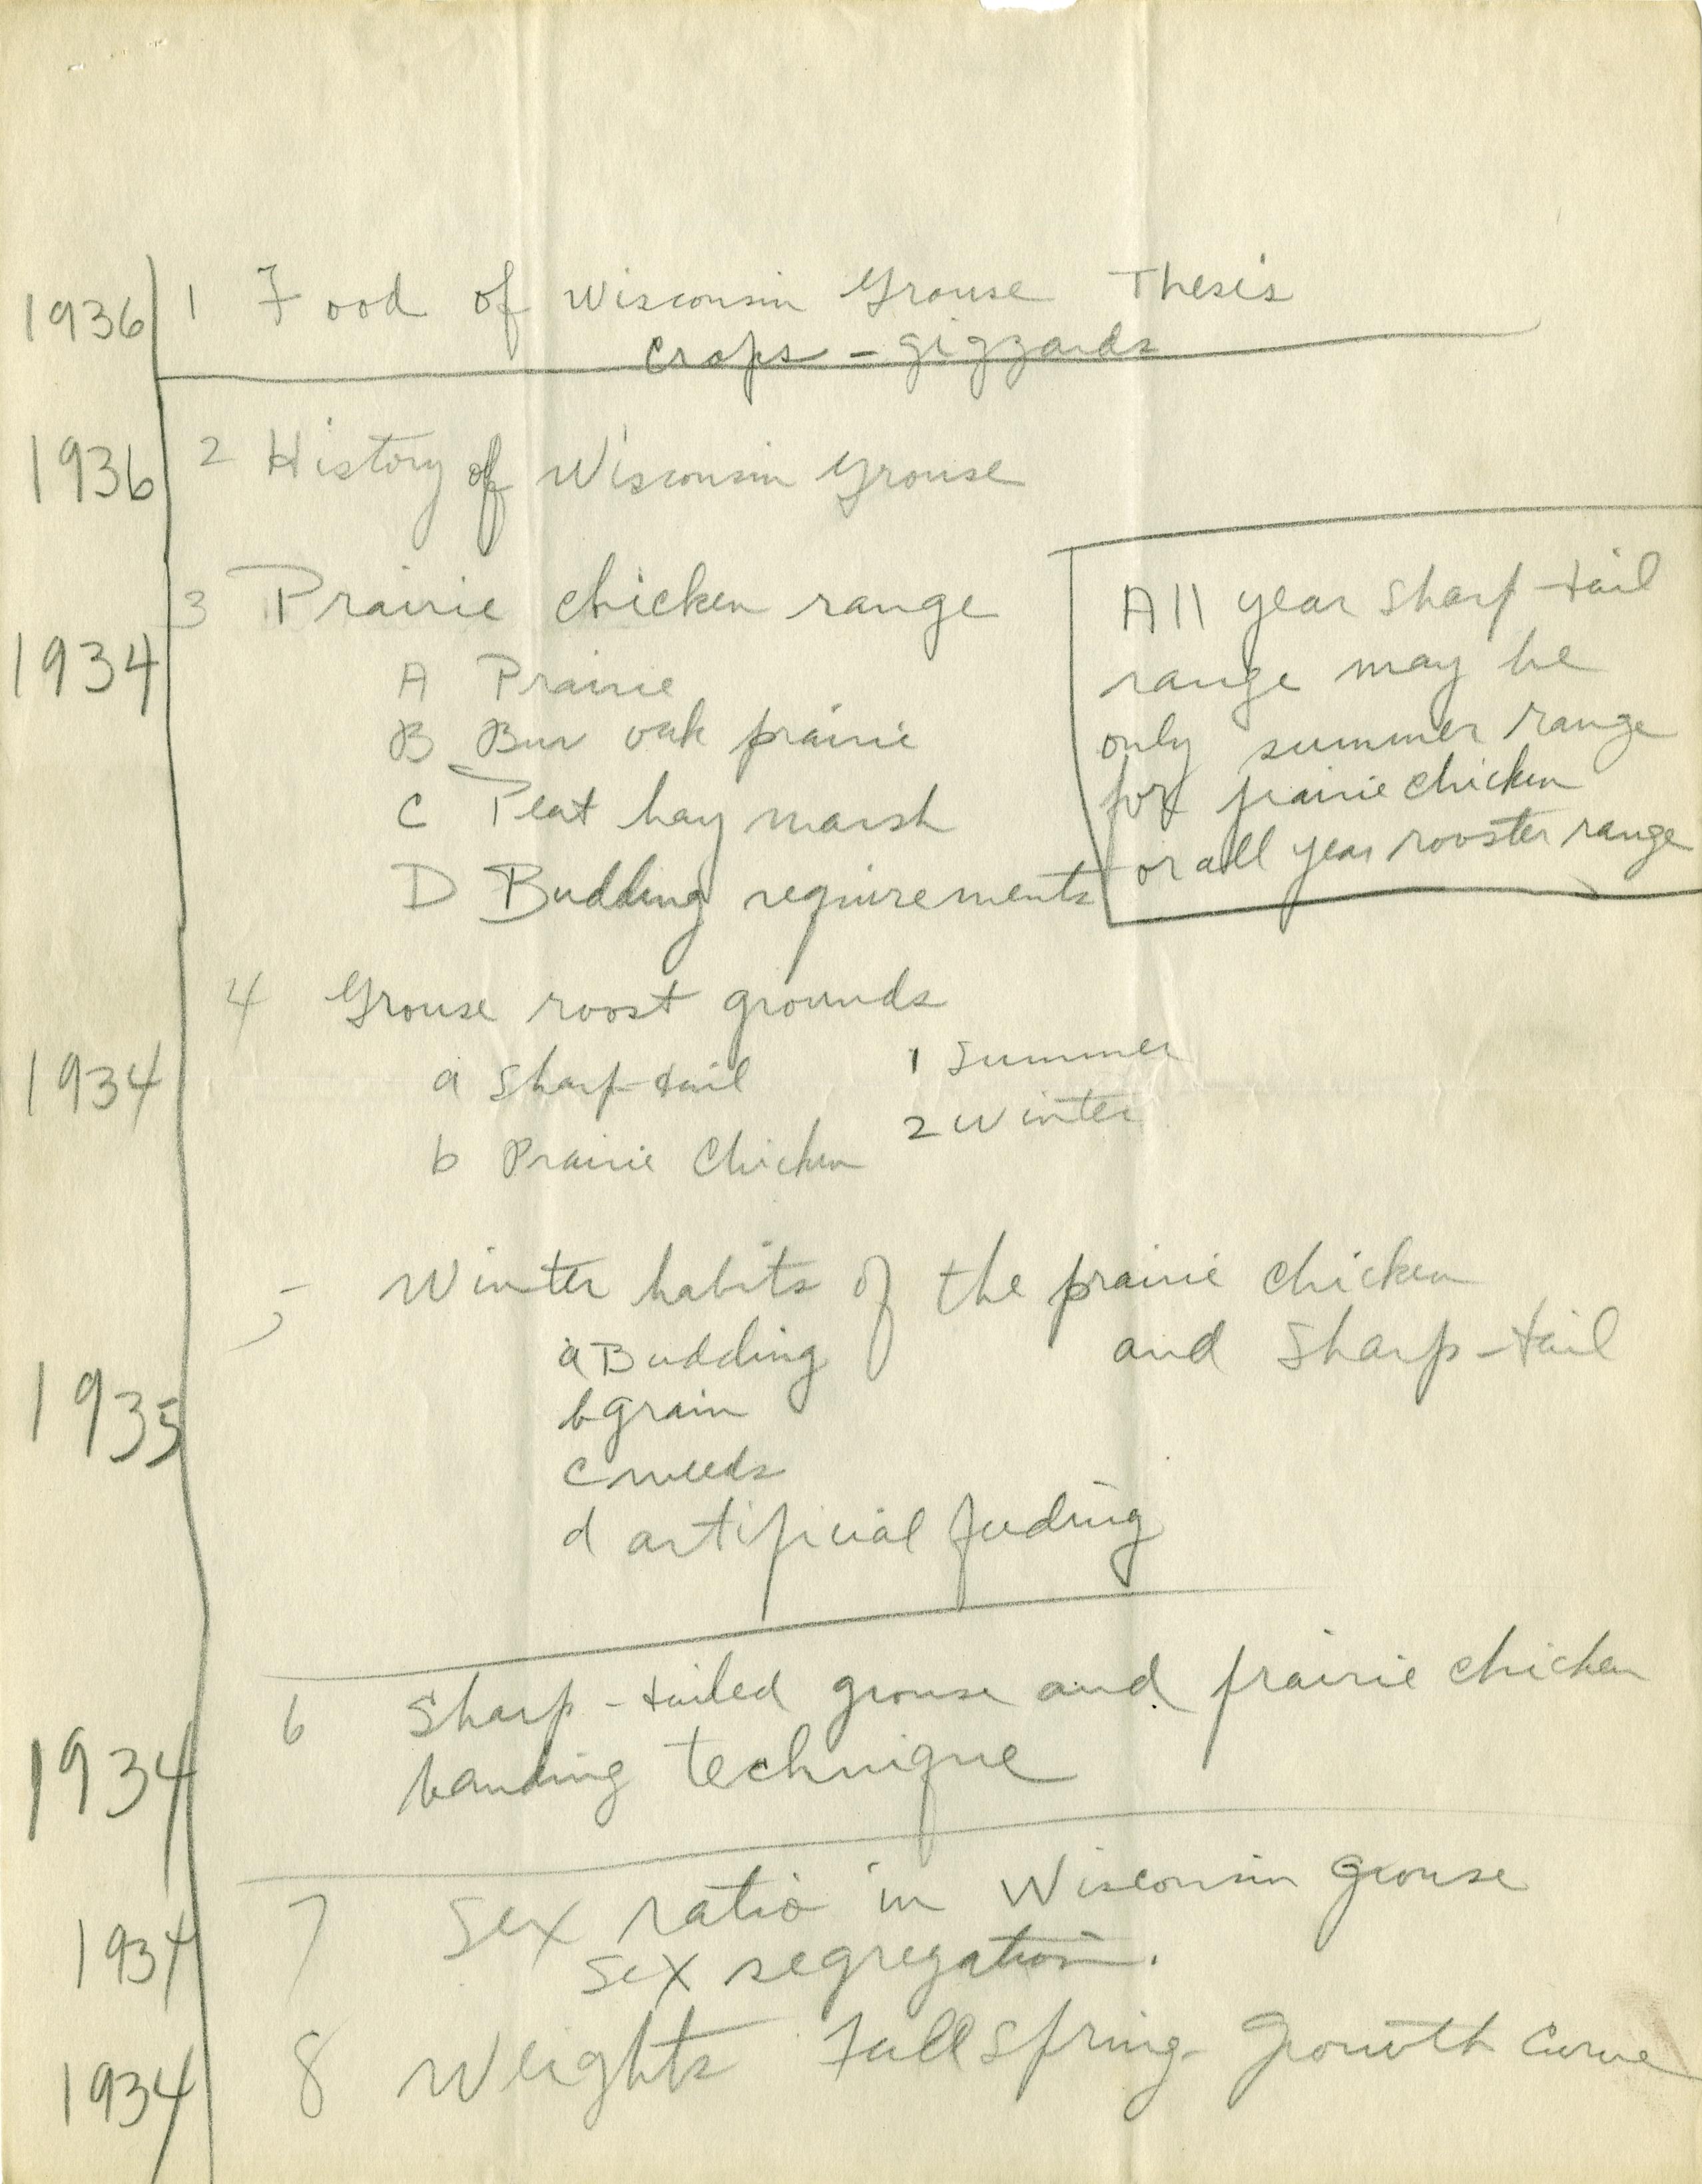 1936 1 Food of Wisconsin Grouse Thesis
crops - gizzards
1936 2 History of Wisconsin Grouse
3 Prairie chicken range
1934
A Prairie
B Bur oak prairie
C Peat hay marsh
D Budding requirements
All year sharp-tail
range may be
only summer range
for prairie chicken
or all year rooster range
4 Grouse roost grounds
1934 a Sharp-tail 1 Summer
b Prairie Chicken 2 Winter
5 Winter habits of the prairie chicken
and Sharp-tail
1935
a Budding
b grain
c weeds
d artificial feeding
6 Sharp-tailed grouse and prairie chicken
1934 banding technique
7 Sex ratio in Wisconsin grouse
1934 Sex segregation.
1934 8 Weights Fall Spring - Growth curve